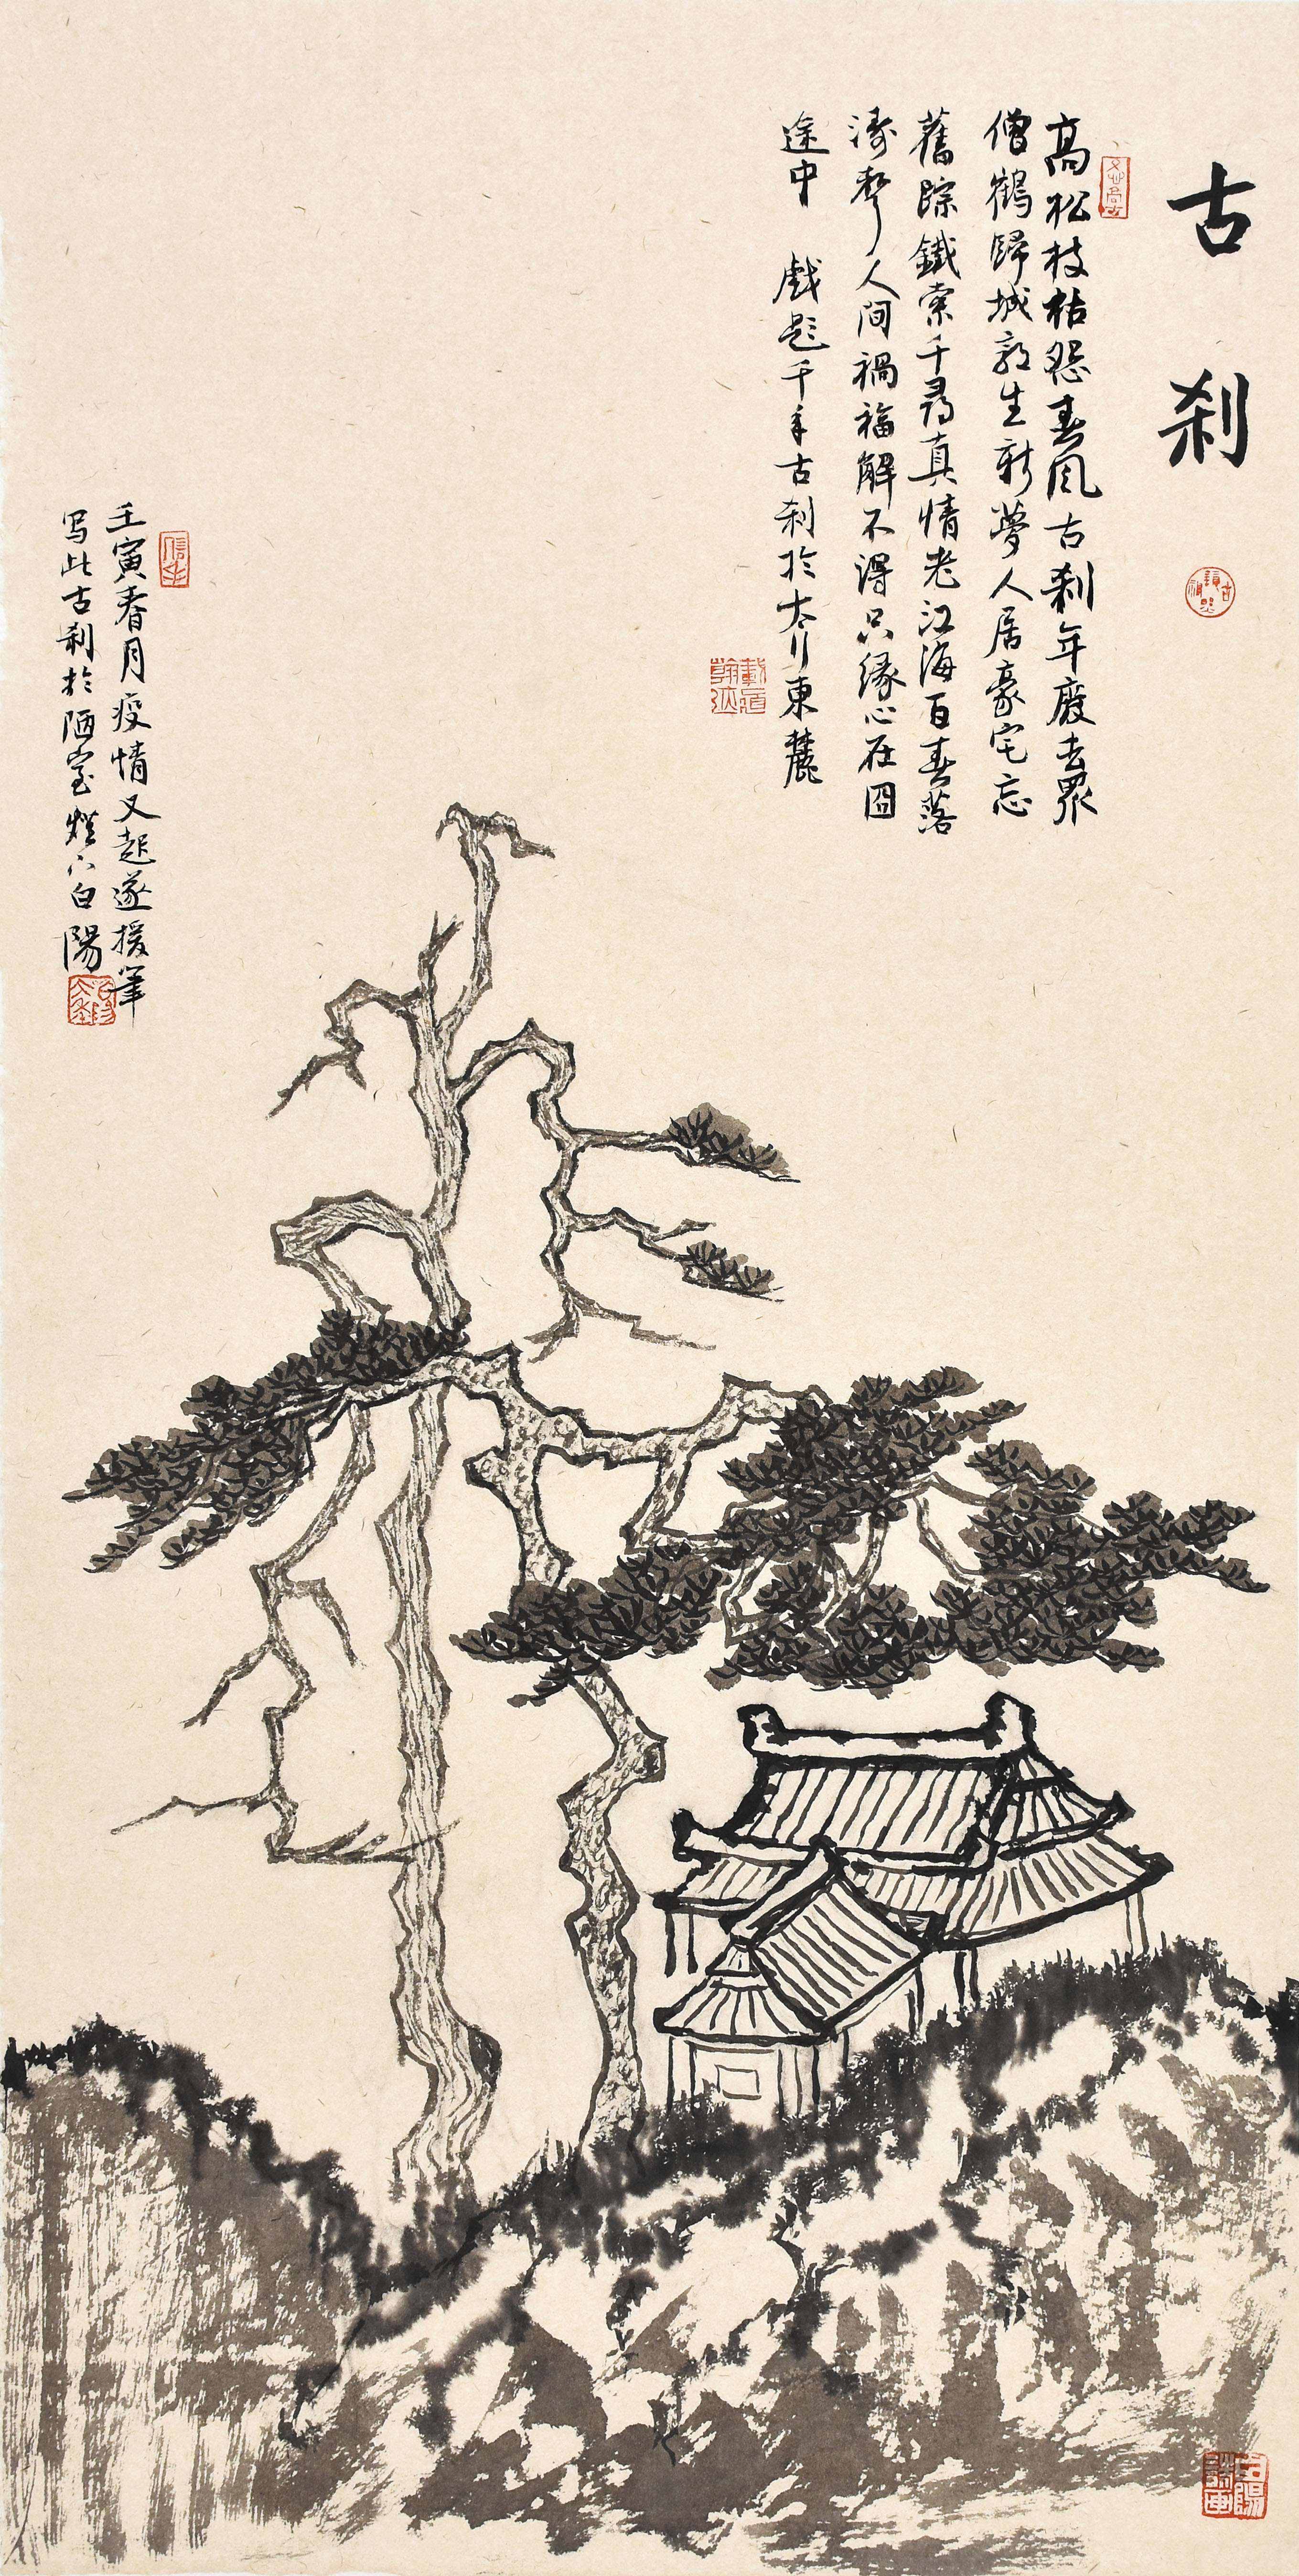 古刹
高松枝枯怨春风古刹年廢去眾
僧鶴歸城郭生新夢人居豪宅忘
舊踪鐵索千尋真情老江海百春落
濤聲人间禍福解不得只緣心在囧
途中 戲题千年古刹於太行東麓
壬寅春月疫情又起遂援筆
写此古刹於陋室燈下白陽